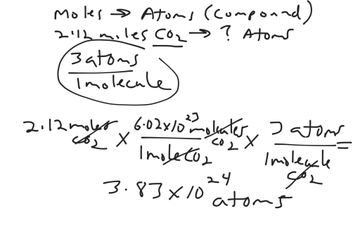 moles → Atoms (compound)
2.12 moles CO2 → ? Atoms
3 atoms
1 molecule
2.12 moles CO2 × 6.02×10^23 molecules CO2 / 1 mole CO2 × 3 atoms / 1 molecule CO2 =
3.83 × 10^24 atoms